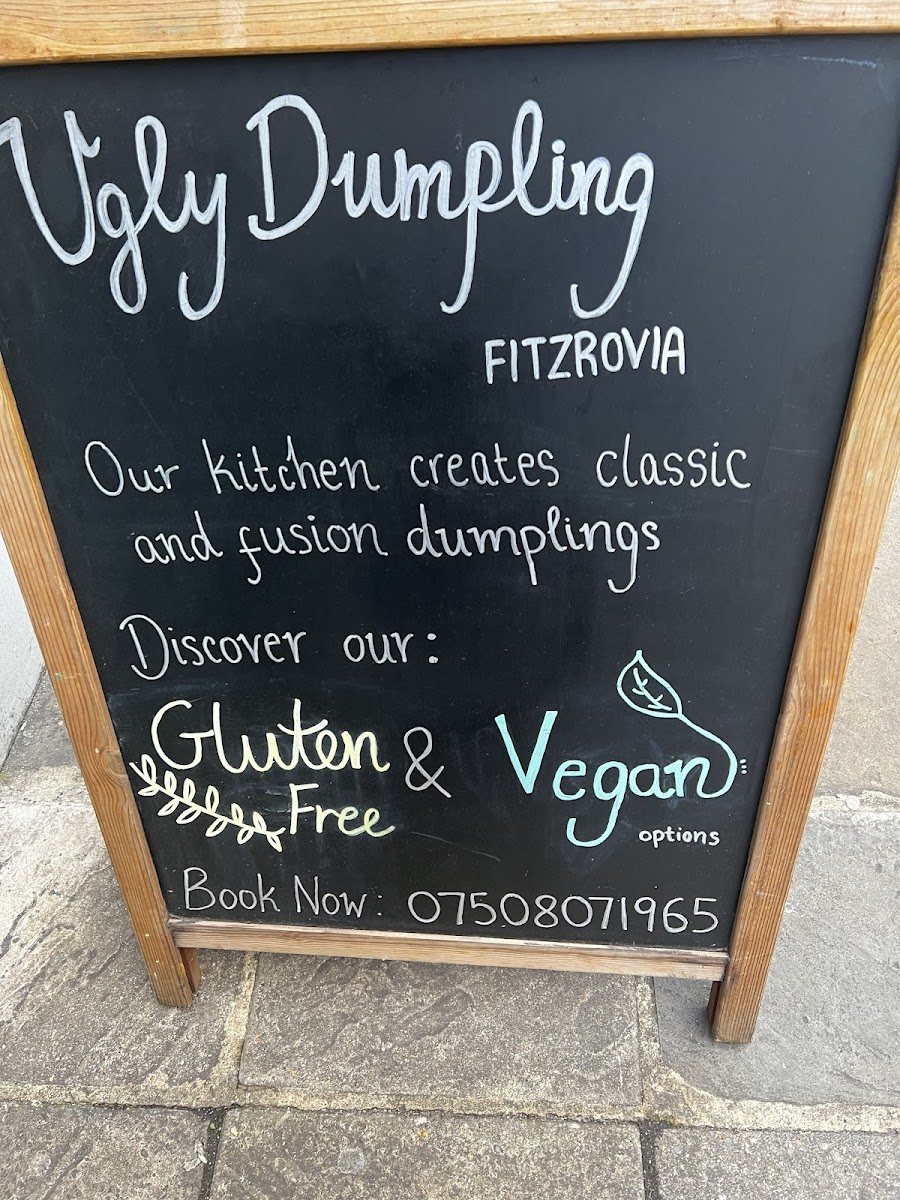 Ugly Dumpling
FITZROVIA
Our kitchen creates classic
and fusion dumplings
Discover our:
Gluten & Vegan
Free
options
Book Now: 07508071965